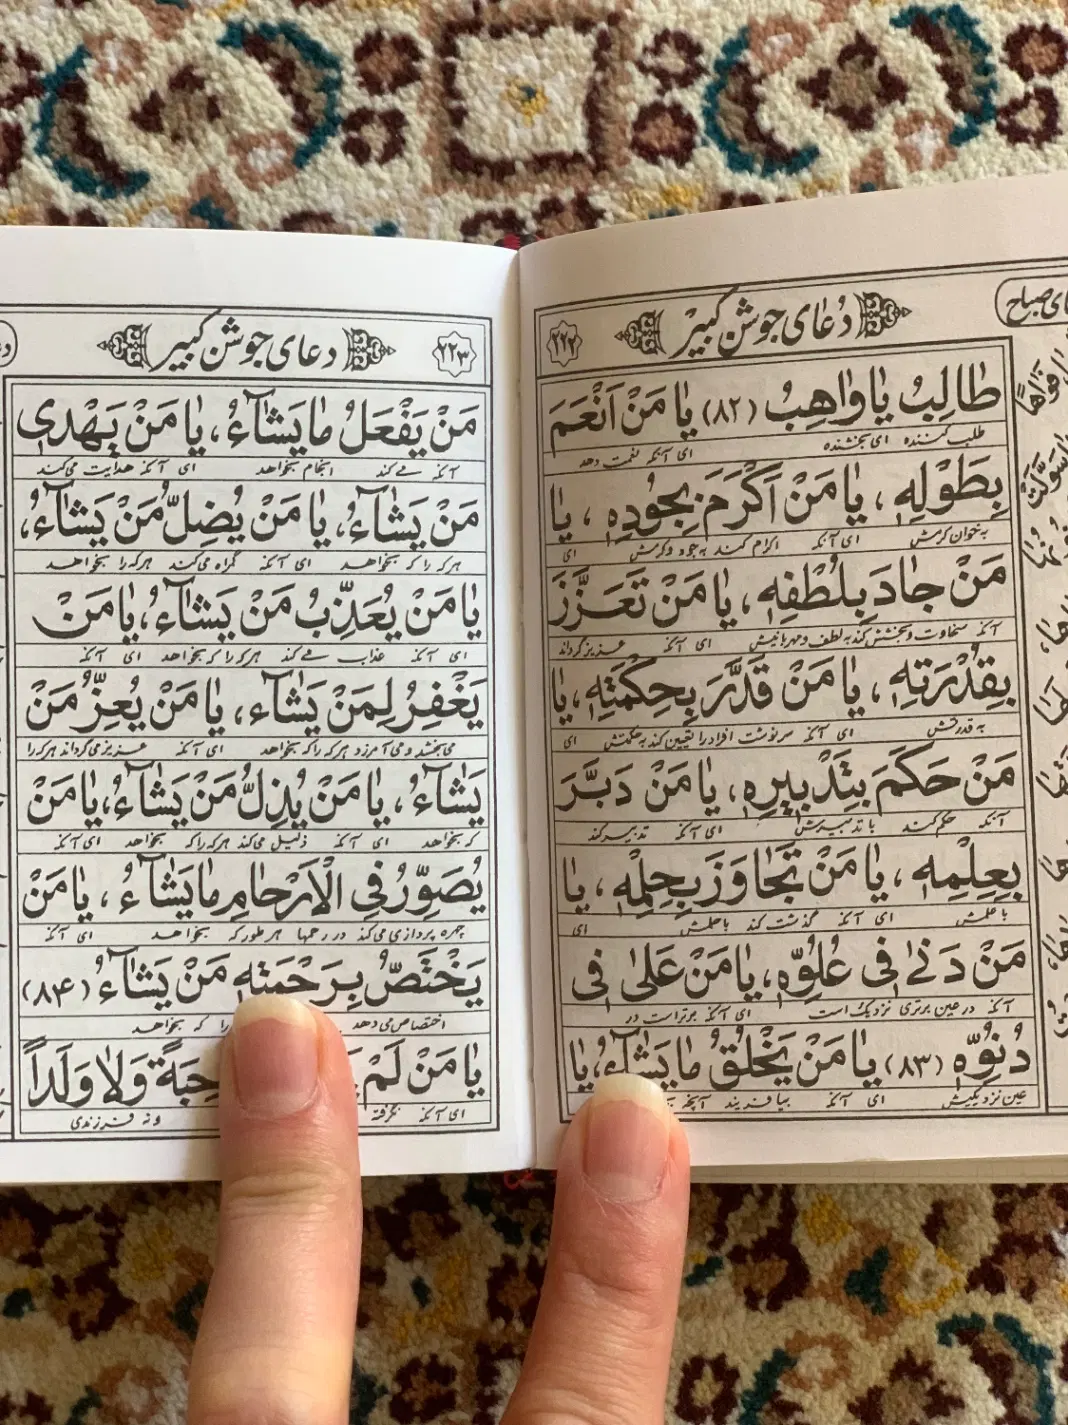 ۲۲۲
دُعٰای جوشن کبیر
طٰالِبُ یٰا وٰاهِبُ (۸۲) یٰا مَنْ اَنْعَمَ
طلب کننده ای بخشنده ای آنکه نعمت دهد
بِطَوْلِهِ ، یٰا مَنْ اَکْرَمَ بِجُودِهِ ، یٰا
به خوان کرمش ای آنکه اکرام کند به جود و کرمش ای
مَنْ جٰادَ بِلُطْفِهِ ، یٰا مَنْ تَعَزَّزَ
آنکه سخاوت و بخشش کند به لطف و مهربانیش ای آنکه عزیز گرداند
بِقُدْرَتِهِ ، یٰا مَنْ قَدَّرَ بِحِکْمَتِهِ ، یٰا
به قدرتش ای آنکه سرنوشت افراد را تعیین کند به حکمتش ای
مَنْ حَکَمَ بِتَدْبیرِهِ ، یٰا مَنْ دَبَّرَ
آنکه حکم کند با تدبیرش ای آنکه تدبیر کند
بِعِلْمِهِ ، یٰا مَنْ تَجٰاوَزَ بِحِلْمِهِ ، یٰا
با علمش ای آنکه گذشت کند با حلمش ای
مَنْ دَنٰی فی عُلُوِّهِ ، یٰا مَنْ عَلیٰ فی
آنکه در عین برتری نزدیک است ای آنکه برتر است در
دُنُوِّهِ (۸۳) یٰا مَنْ یَخْلُقُ مٰا یَشٰآءُ ، یٰا
عین نزدیکیش ای آنکه بیافریند آنچه
دعای جوشن کبیر
۲۲۳
مَنْ یَفْعَلُ مٰا یَشٰآءُ ، یٰا مَنْ یَهْدی
آنکه می کند انجام بخواهد ای آنکه هدایت می کند
مَنْ یَشٰآءُ ، یٰا مَنْ یُضِلُّ مَنْ یَشٰآءُ ،
هر که را که بخواهد ای آنکه گمراه می کند هر که را بخواهد
یٰا مَنْ یُعَذِّبُ مَنْ یَشٰآءُ ، یٰا مَنْ
ای آنکه عذاب می کند هر که را که بخواهد ای آنکه
یَغْفِرُ لِمَنْ یَشٰآء ، یٰا مَنْ یُعِزُّ مَنْ
می بخشد و می آمرزد هر که را که بخواهد ای آنکه عزیز می گرداند هر که را
یَشٰآءُ ، یٰا مَنْ یُذِلُّ مَنْ یَشٰآءُ ، یٰا مَنْ
که بخواهد ای آنکه ذلیل می کند هر که را که بخواهد ای آنکه
یُصَوِّرُ فِی الْاَرْحٰامِ مٰا یَشٰآءُ ، یٰا مَنْ
چهره پردازی می کند در رحمها هر طور که بخواهد ای آنکه
یَخْتَصُّ بِرَحْمَتِهِ مَنْ یَشٰآءُ (۸۴)
اختصاص می دهد را که بخواهد
یٰا مَنْ لَمْ حِبَةً وَلٰا وَلَداً
ای آنکه نگرفته و نه فرزندی